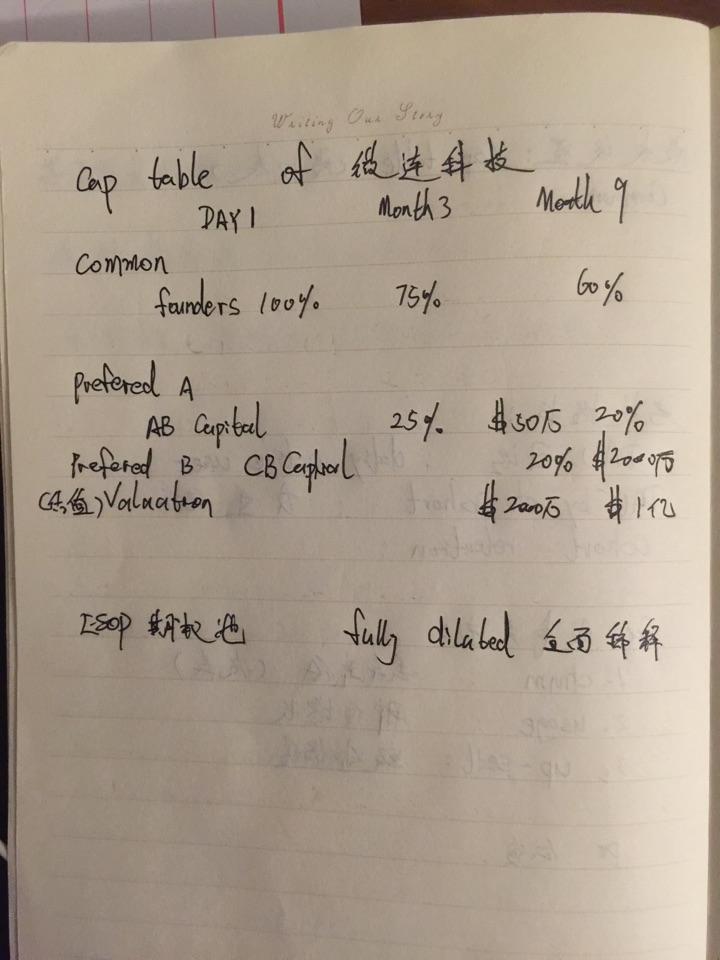 Writing Our Story
Cap table of 微连科技
DAY 1 Month 3 Month 9
Common
founders 100% 75% 60%
Prefered A
AB Capital 25% $50万 20%
Prefered B CB Capital 20% $2000万
(估值) Valuation $2000万 $1亿
ESOP 期权池 fully diluted 全面稀释